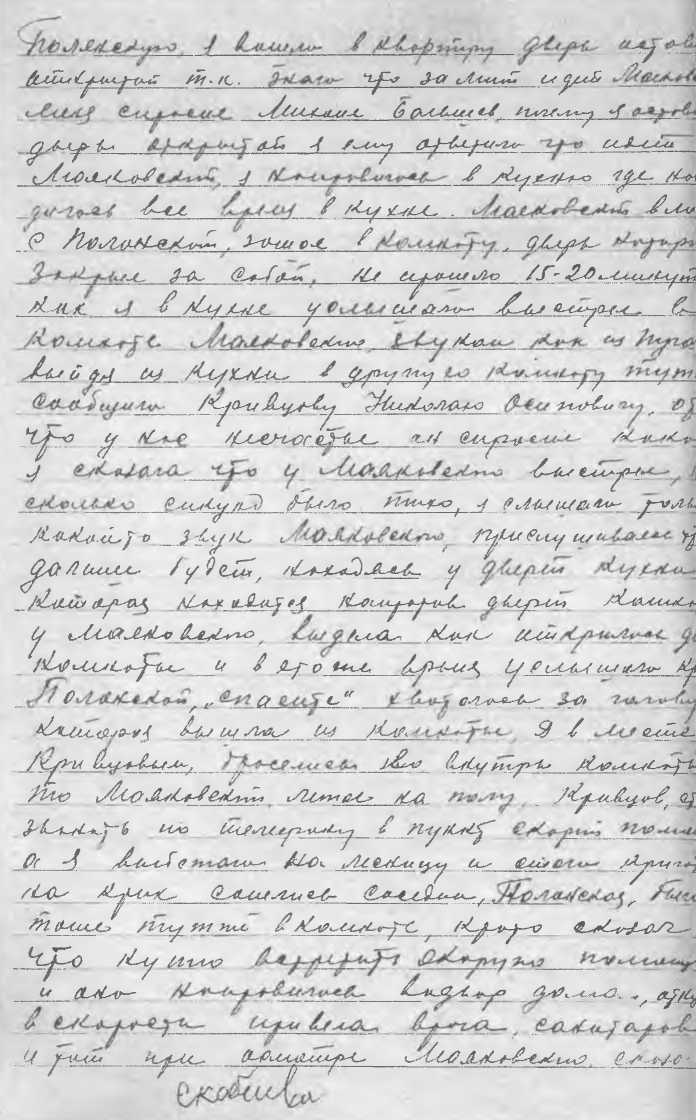 Полянскую, я вошла в квартиру дверь остов
открытой т.к. знаю что за мит идет Маяков
меня спросие Михаие Бальшев, почему я остров
дверь открытой я ему ответила что идет
Маяковский, я направилась в кухню где на
дилась все время в кухне. Маяковский вме
с Полонской, зашое в комноту, дверь
закрыл за собой, не прошло 15-20 минут
как я в кухне услышала выстрел в
комноте Маяковского, звукам как из пуга
выйдя из кухни в другую комноту тут
сообщила Кривцову Николаю Осиповичу,
что у нас несчастье он спросие како
я сказала что у Маяковского выстрел,
сколько сикунд было тихо, я слышала толь
какойто звук Маяковского, прислушивалась
далше будет, находясь у дверей кухни
которая находится напротов дверей комна
у Маяковского, видела как открылась д
комноты и в етоже время услышала кр
Полонской, „спасите" хваталась за голову
которая вышла из комноты, Я в месте
Кривцовым, бросились внутрь комноты
то Маяковский лежал на полу, Кривцов, ст
звонить по телефону в пункт скорой помощ
а я выбежала на лесницу и стала крича
на крик сошлись соседи, Полонская, была
тоже тутже в комноте, кто-то сказал
что нужно встретить скорую помощ
и она направилась вадвор дома.,
в скорости привела врача, санитаров
и тот при осмотре Маяковского сказа
Скобина